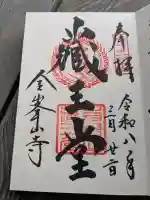 奉拝
令和八年
二月廿二日
藏王堂
金峯山寺